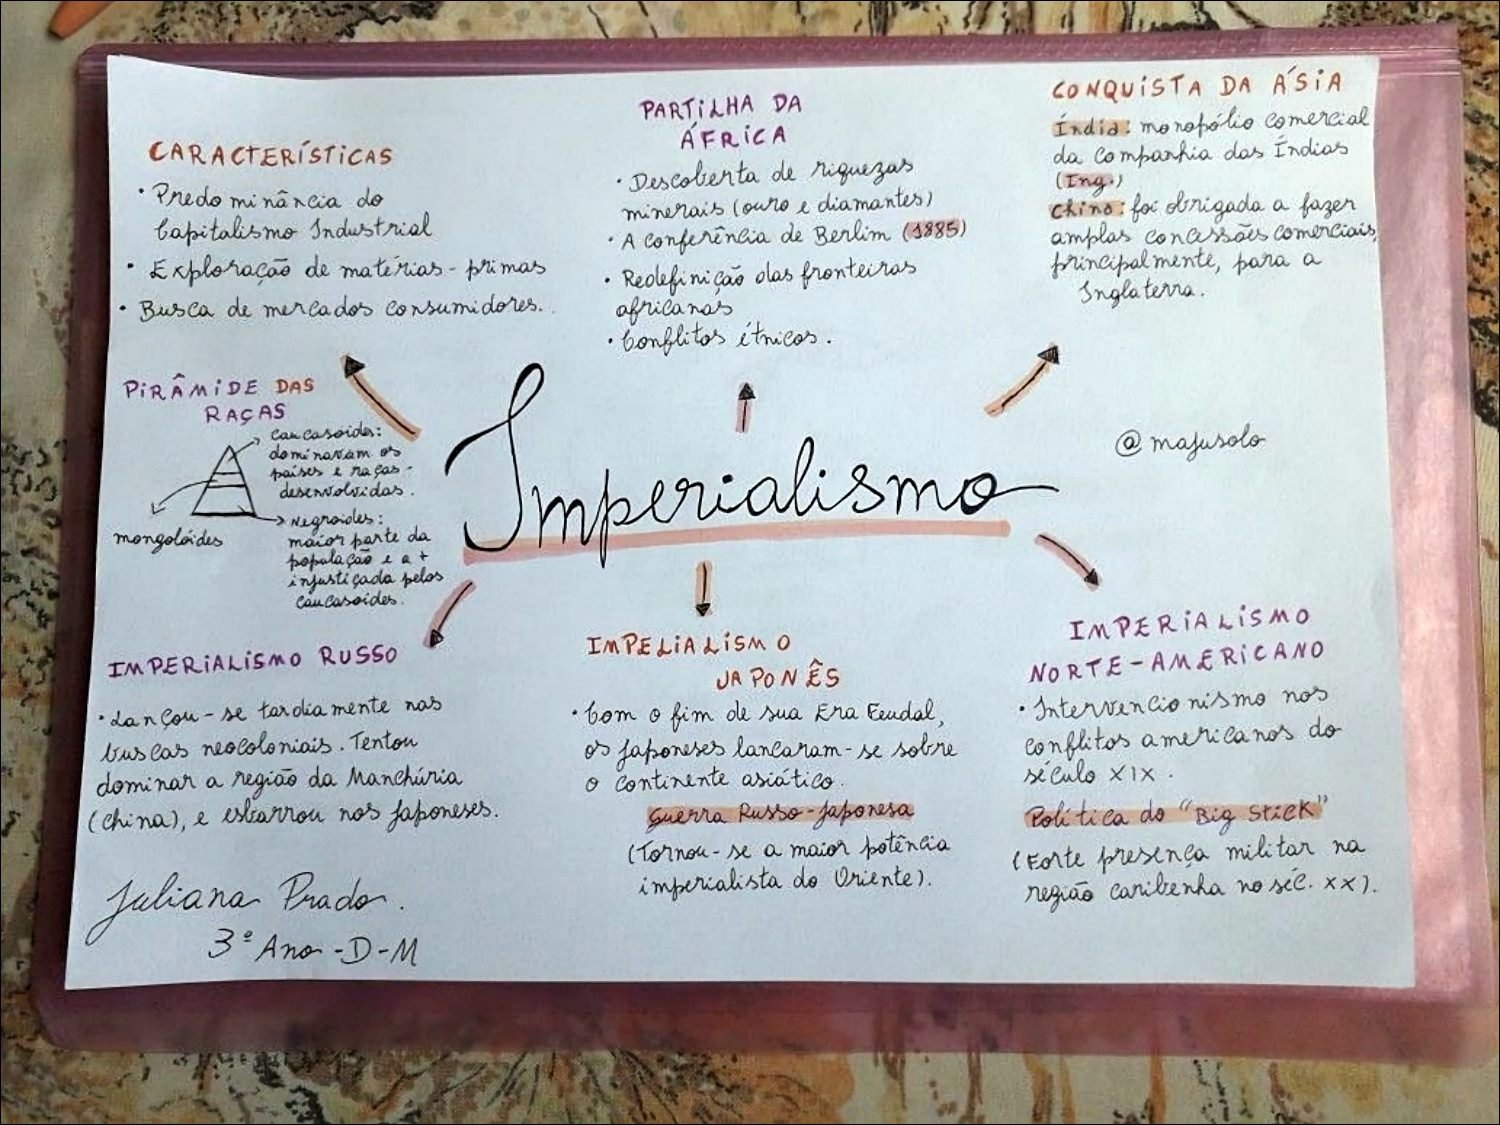 CARACTERÍSTICAS
• Predominância do
Capitalismo Industrial
• Exploração de matérias-primas
• Busca de mercados consumidores.
PARTILHA DA
ÁFRICA
• Descoberta de riquezas
minerais (ouro e diamantes)
• A conferência de Berlim (1885)
• Redefinição das fronteiras
africanas
• Conflitos étnicos.
CONQUISTA DA ÁSIA
Índia: monopólio comercial
da Companhia das Índias
(Ing.)
China: foi obrigada a fazer
amplas concessões comerciais,
principalmente, para a
Inglaterra.
PIRÂMIDE DAS
RAÇAS
Caucasoides:
dominavam os
países e raças-
desenvolvidas.
mongolóides
Negroides:
maior parte da
população e a +
injustiçada pelos
Caucasoides.
Imperialismo
@majusolo
IMPERIALISMO RUSSO
• Lançou-se tardiamente nas
buscas neocoloniais. Tentou
dominar a região da Manchúria
(China), e esbarrou nos Japoneses.
IMPELIALISMO
JAPONÊS
• Com o fim de sua Era Feudal,
os Japoneses lancaram-se sobre
o continente asiático.
Guerra Russo-Japonesa
(Tornou-se a maior potência
imperialista do Oriente).
IMPERIALISMO
NORTE-AMERICANO
• Intervencionismo nos
conflitos americanos do
século XIX.
Política do "Big Stick"
(Forte presença militar na
região caribenha no séc. XX).
Juliana Prado.
3º Ano-D-M